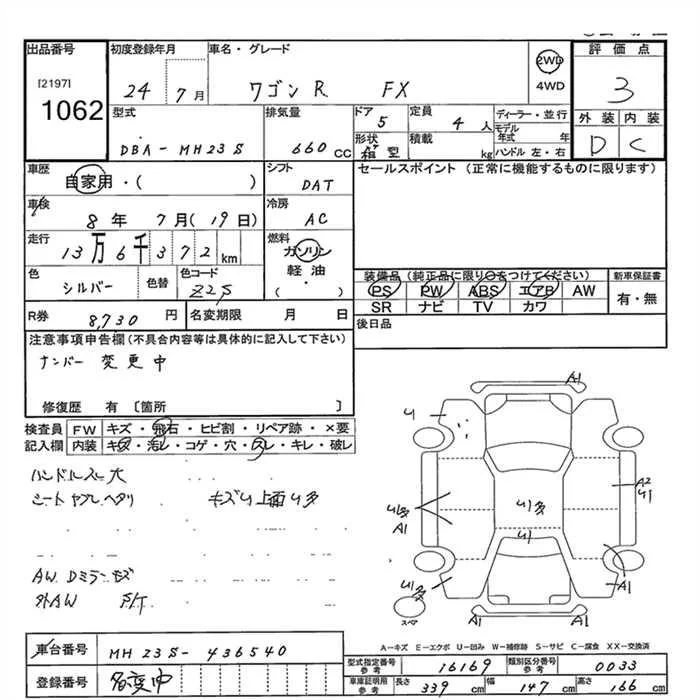 出品番号 初度登録年月 車名・グレード 評価点
[2197] 1062
24年 7月 ワゴンR FX
2WD
4WD
3
型式 排気量 ドア 定員 ディーラー・並行
外装 内装
DBA-MH23S 660cc 5 4人
モデル年式 年
D C
形状 箱型 積載 kg ハンドル 左・右
車歴 シフト セールスポイント (正常に機能するものに限ります)
自家用・( ) DAT
車検 冷房
8年 7月(19日) AC
走行 燃料
13万6千372km ガソリン
軽油・( )
装備品 (純正品に限り○をつけてください) 新車保証書
色 シルバー 色替 色コード Z2S
PS PW ABS エアB AW 有・無
SR ナビ TV カワ
R券 8,730円 名変期限 月 日
後日品
注意事項申告欄(不具合内容等は具体的に記入して下さい)
ナンバー変更中
修復歴 有 〔箇所 〕
検査員 FW キズ・飛石・ヒビ割・リペア跡・×要
記入欄 内装 キズ・汚レ・コゲ・穴・スレ・キレ・破レ
ハンドルスレ大
シートヤブレヘタリ キズU上面U多
AW Dミラーキズ
外AW F/T
A1
U
A2
U1
U1多
A1
U1多
U1多
A1
A1
スペア
A-キズ E-エクボ U-凹み W-補修跡 S-サビ C-腐食 XX-交換済
車台番号 MH23S-436540
型式指定番号 参考 16169 類別区分番号 参考 0033
登録番号 名変中
車庫証明用 参考 長さ 339cm 幅 147cm 高さ 166cm